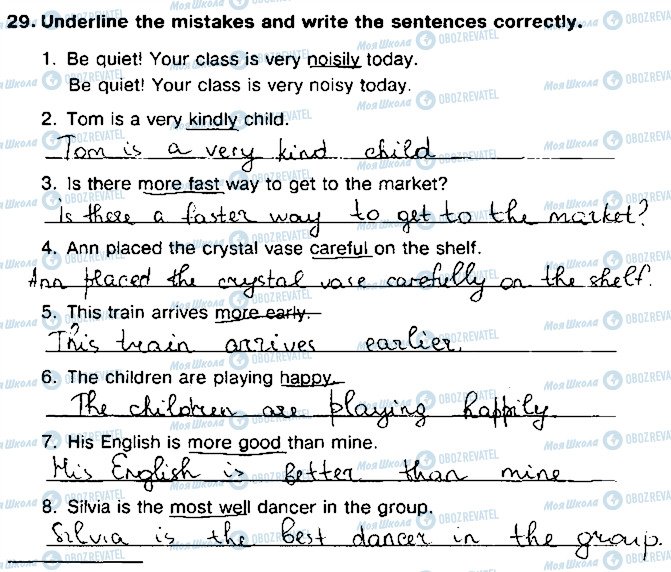 29. Underline the mistakes and write the sentences correctly.
1. Be quiet! Your class is very noisily today.
Be quiet! Your class is very noisy today.
2. Tom is a very kindly child.
Tom is a very kind child
3. Is there more fast way to get to the market?
Is there a faster way to get to the market?
4. Ann placed the crystal vase careful on the shelf.
Ann placed the crystal vase carefully on the shelf.
5. This train arrives more early.
This train arrives earlier.
6. The children are playing happy.
The children are playing happily.
7. His English is more good than mine.
His English is better than mine
8. Silvia is the most well dancer in the group.
Silvia is the best dancer in the group.